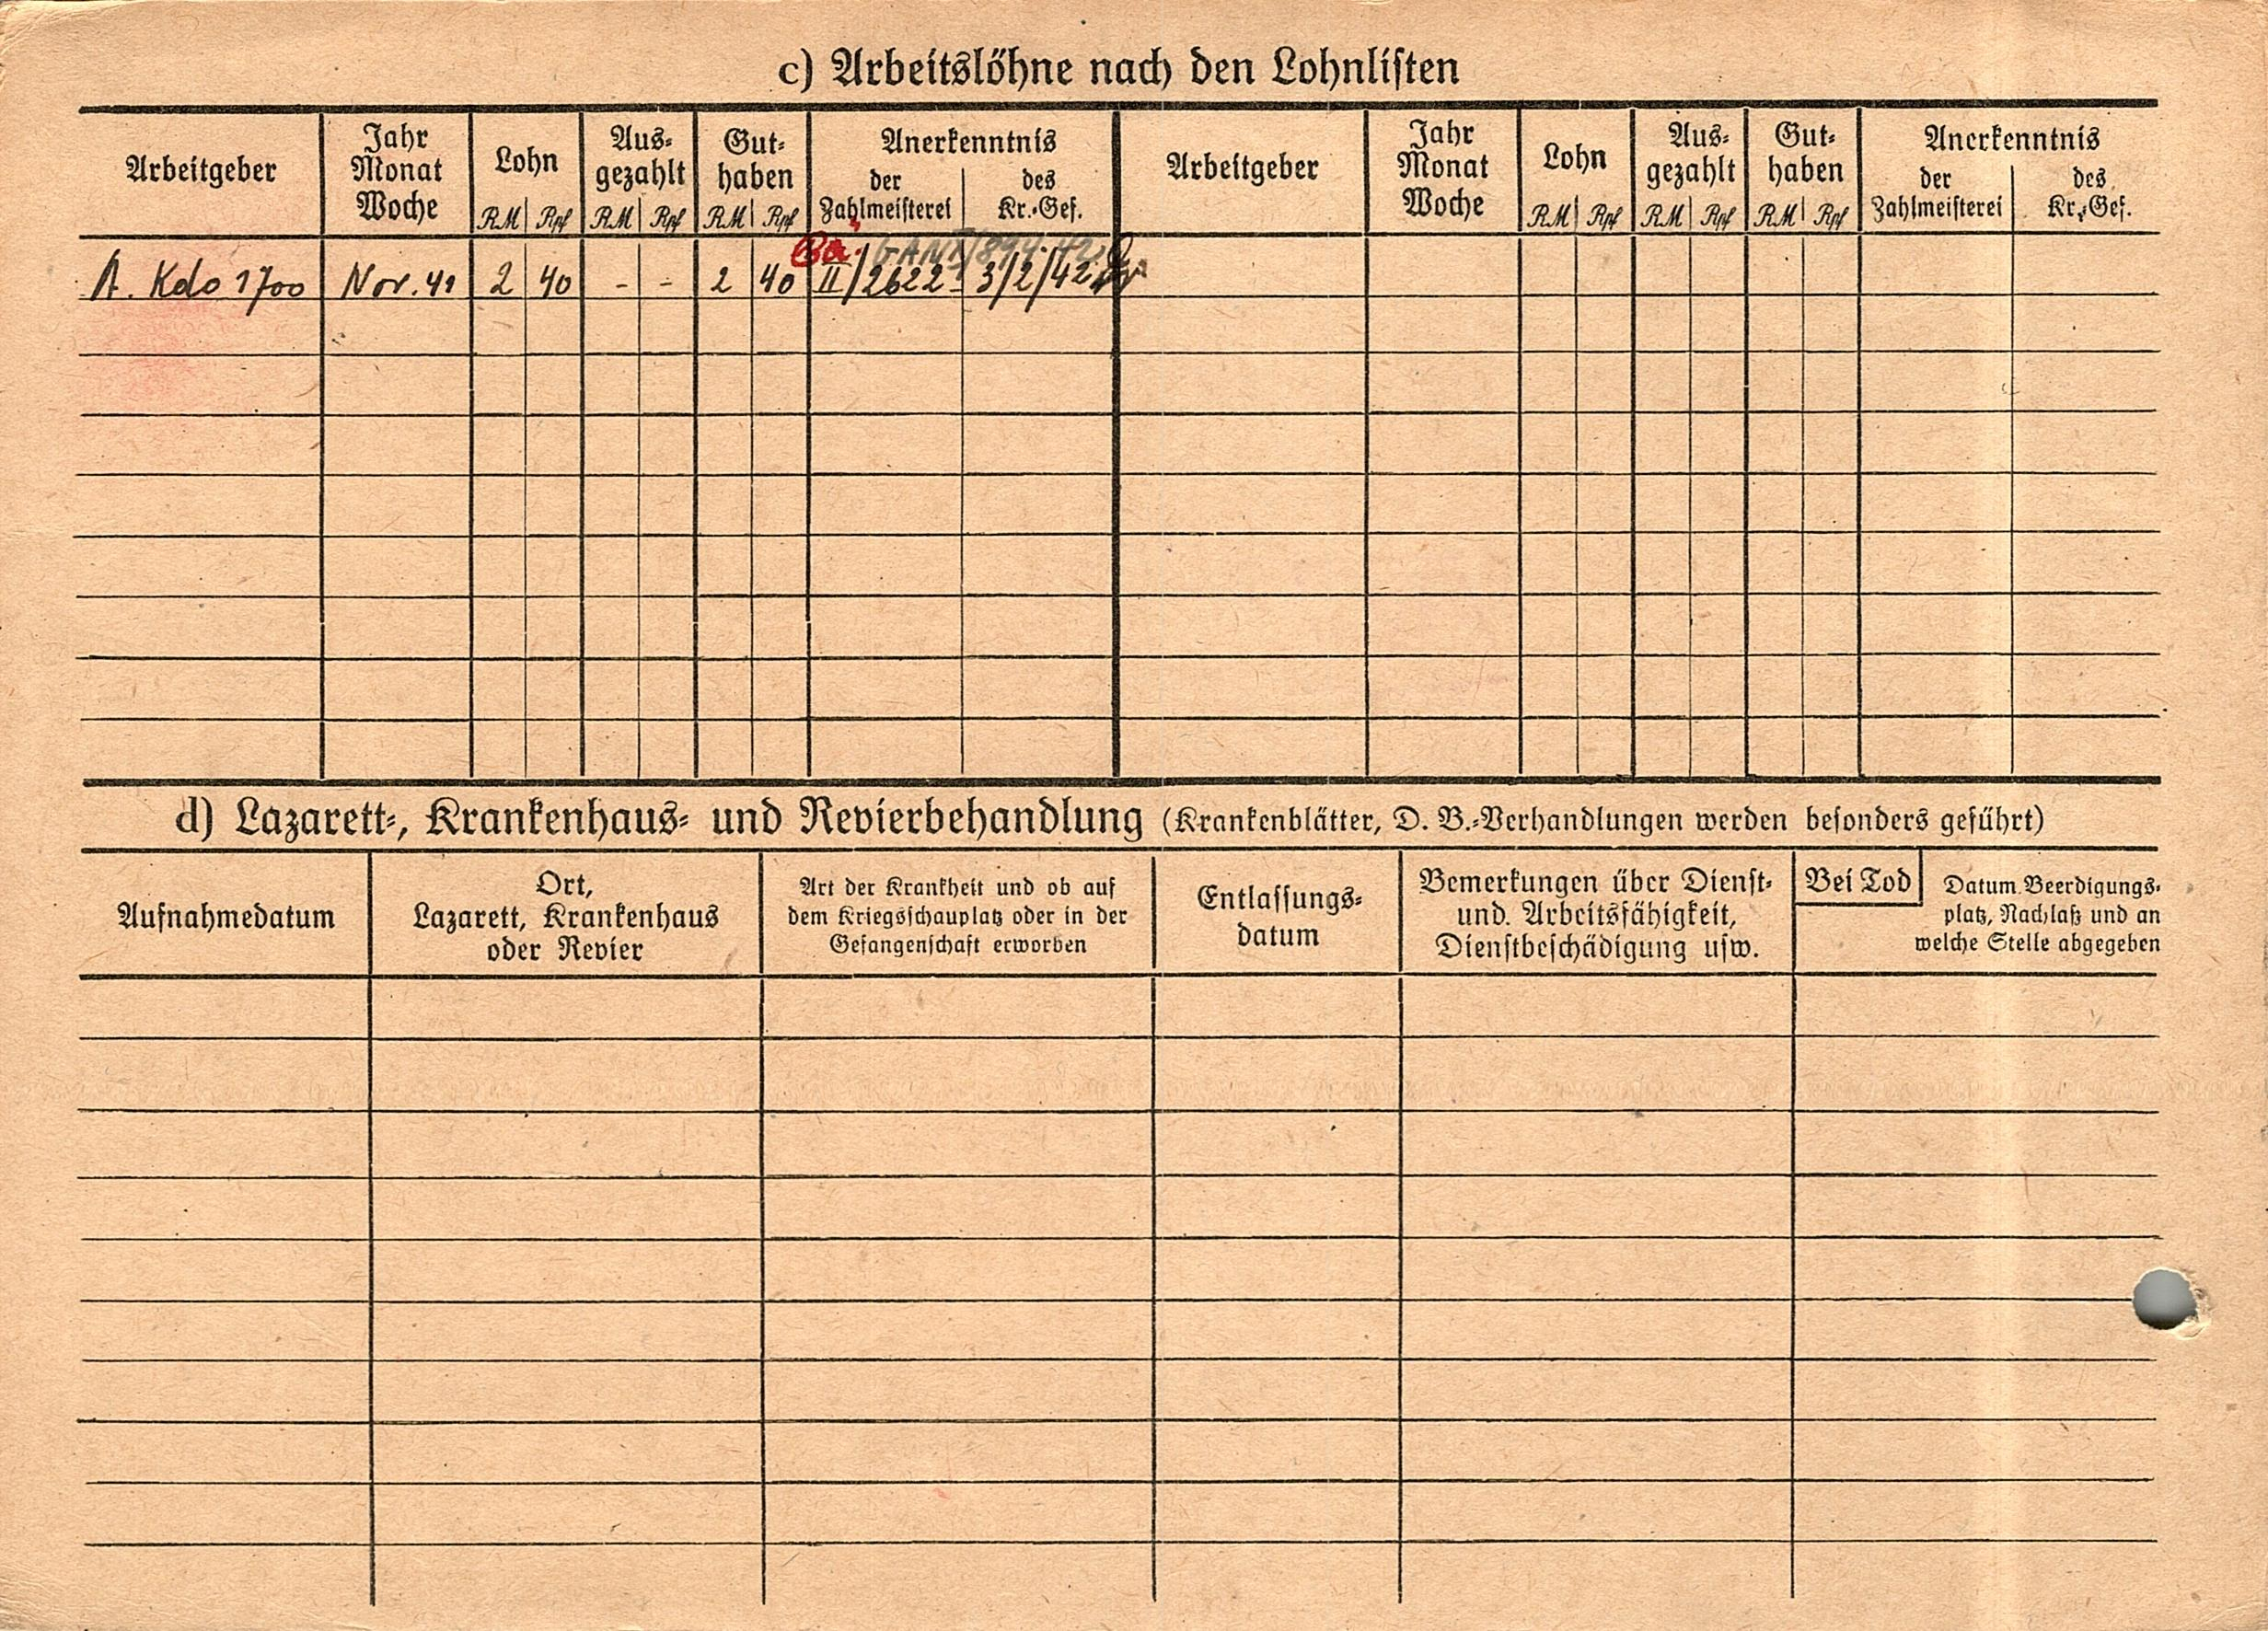 c) Arbeitslöhne nach den Lohnlisten
Arbeitgeber
Jahr
Monat
Woche
Lohn
RM Rpf
Aus-
gezahlt
RM Rpf
Gut-
haben
RM Rpf
Anerkenntnis
der
Zahlmeisterei
des
Kr.-Gef.
Arbeitgeber
Jahr
Monat
Woche
Lohn
RM Rpf
Aus-
gezahlt
RM Rpf
Gut-
haben
RM Rpf
Anerkenntnis
der
Zahlmeisterei
des
Kr.-Gef.
A. Kdo 1700 Nov. 41 2 40 - - 2 40 II/2622 - 3/2/42
d) Lazarett-, Krankenhaus- und Revierbehandlung (Krankenblätter, D. B.-Verhandlungen werden besonders geführt)
Aufnahmedatum
Ort,
Lazarett, Krankenhaus
oder Revier
Art der Krankheit und ob auf
dem Kriegsschauplatz oder in der
Gefangenschaft erworben
Entlassungs-
datum
Bemerkungen über Dienst-
und Arbeitsfähigkeit,
Dienstbeschädigung usw.
Bei Tod
Datum Beerdigungs-
platz, Nachlaß und an
welche Stelle abgegeben